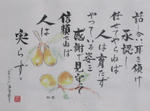 話し合い、耳を傾け
承認し、任せてやらねば
人は育たず
やっている、姿を
感謝で見守って
信頼せねば
人は
実らず。